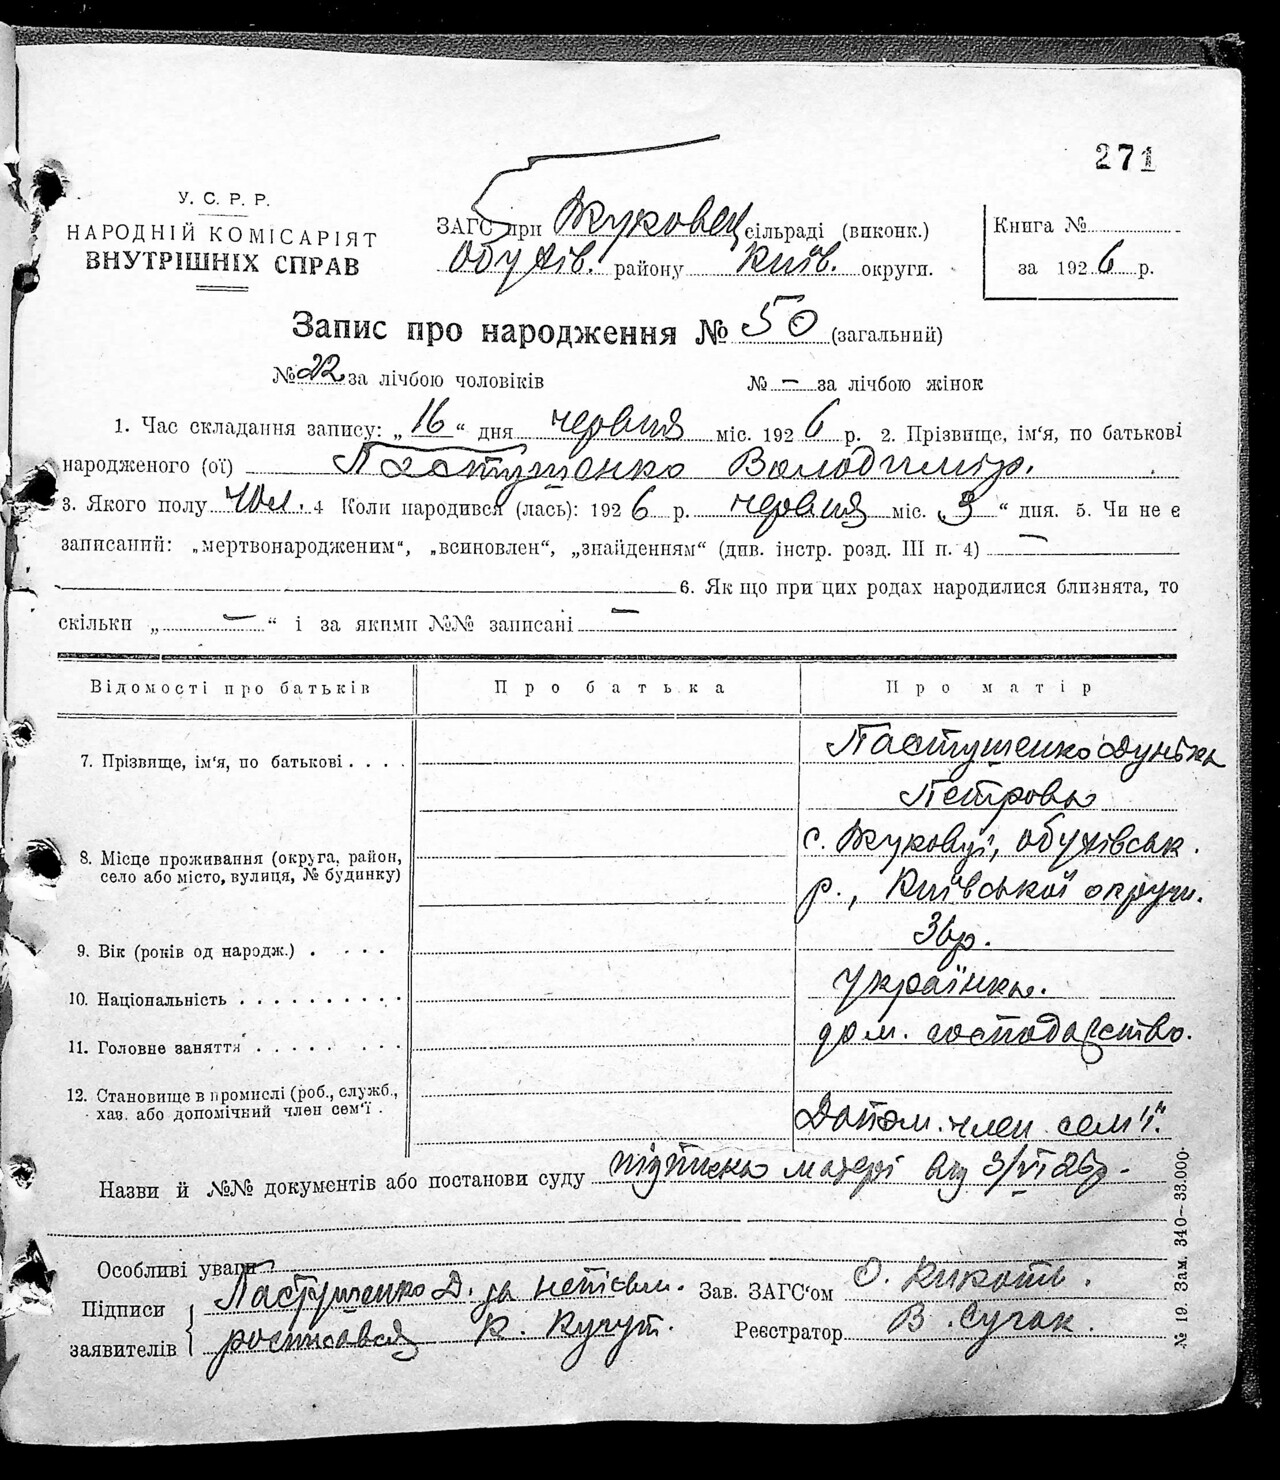 271
У. С. Р. Р.
НАРОДНІЙ КОМІСАРІЯТ
ВНУТРІШНІХ СПРАВ
ЗАГС при Жуковец сільраді (виконк.)
Обухів. району Київ. округи.
Книга №
за 1926 р.
Запис про народження № 50 (загальний)
№ 22 за лічбою чоловіків № – за лічбою жінок
1. Час складання запису: „16“ дня червня міс. 1926 р. 2. Прізвище, ім'я, по батькові
народженого (ої) Пастушенко Володимир.
3. Якого полу чол. 4 Коли народився (лась): 1926 р. червня міс. „3“ дня. 5. Чи не є
записаний: „мертвонародженим“, „всиновлен“, „знайденням“ (див. інстр. розд. III п. 4) –
6. Як що при цих родах народилися близнята, то
скільки „ – “ і за якими №№ записані –
Відомості про батьків Про батька Про матір
7. Прізвище, ім'я, по батькові . . . . Пастушенко Дунька
Петровa
8. Місце проживання (округа, район,
село або місто, вулиця, № будинку)
с. Жуковці, Обухівськ.
р., Київської округи.
9. Вік (років од народж.) . . . . 36 р.
10. Національність . . . . . . . . . . Українка.
11. Головне заняття . . . . . . . . . дом. господарство.
12. Становище в промислі (роб., служб.,
хаз. або допомічний член сем'ї .
Допом. член сем'ї.
Назви й №№ документів або постанови суду підписка матері від 3/VI 26 р.
Особливі уваги
Підписи
заявителів
Пастушенко Д. за непісьм.
росписався К.
Зав. ЗАГС'ом О.
Реєстратор В. Сучак.
№ 19. Зам. 340—33.000.